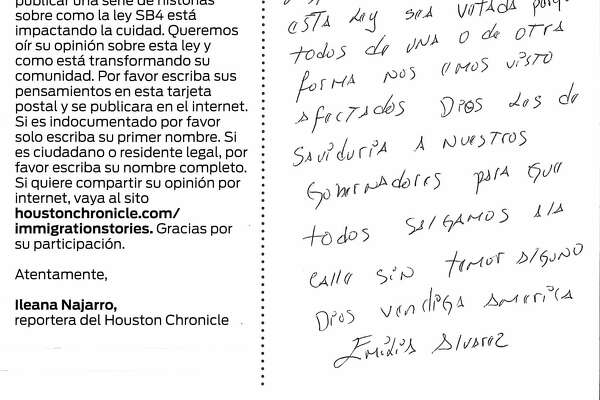 publicar una serie de historias
sobre como la ley SB4 está
impactando la cuidad. Queremos
oír su opinión sobre esta ley y
como está transformando su
comunidad. Por favor escriba sus
pensamientos en esta tarjeta
postal y se publicara en el internet.
Si es indocumentado por favor
solo escriba su primer nombre. Si
es ciudadano o residente legal, por
favor escriba su nombre completo.
Si quiere compartir su opinión por
internet, vaya al sito
houstonchronicle.com/
immigrationstories. Gracias por
su participación.
Atentamente,
Ileana Najarro,
reportera del Houston Chronicle
esta ley sea votada porque
todos de una o de otra
forma nos emos visto
afectados Dios les de
saviduria a nuestros
Gobernadores para que
todos salgamos ala
calle sin temor alguno
Dios vendiga america
Emidia Alvarez